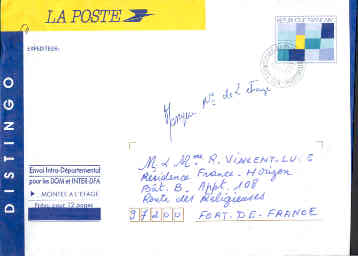 LA POSTE
REPUBLIQUE FRANÇAISE
EXPEDITEUR:
DISTINGO
Manque N° de l'etage
Envoi Intra-Départemental
pour les DOM et INTER-DFA
MONTEE A L'ETAGE
M & Mme R. VINCENT-LU. G
Résidence France-Horizon
Bât. B. Appt. 108
Route des Religieuses
97200 FORT-DE-FRANCE